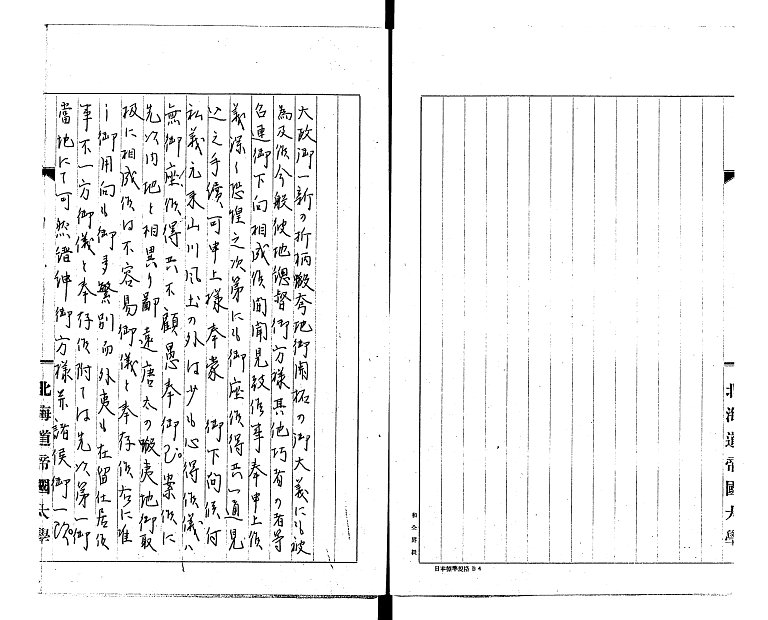 大政御一新の折柄蝦夷地御開拓の御大義にも被
為及候今般彼地總督御方様其他巧者の者等
召連御下向相成候間聞見致候事奉申上候
義深く恐惶之次第にも御座候得共一通見
込之手續可申上様奉蒙 御下問候何
私義元来山川風土の外は少も心得候儀ハ
無御座候得共不顧愚奉御 案候に
先以内地と相異り鄙遠唐太の蝦夷地御取
扱に相成候は不容易御儀と奉存候右に准
し御用向も御多繁別而外夷も在留仕居候
事不一方御儀と奉存候附ては先以第一御
當地にて可然縉紳御方様并諸侯御一
北海道帝國大學
北海道帝國大學
日本標準規格B4